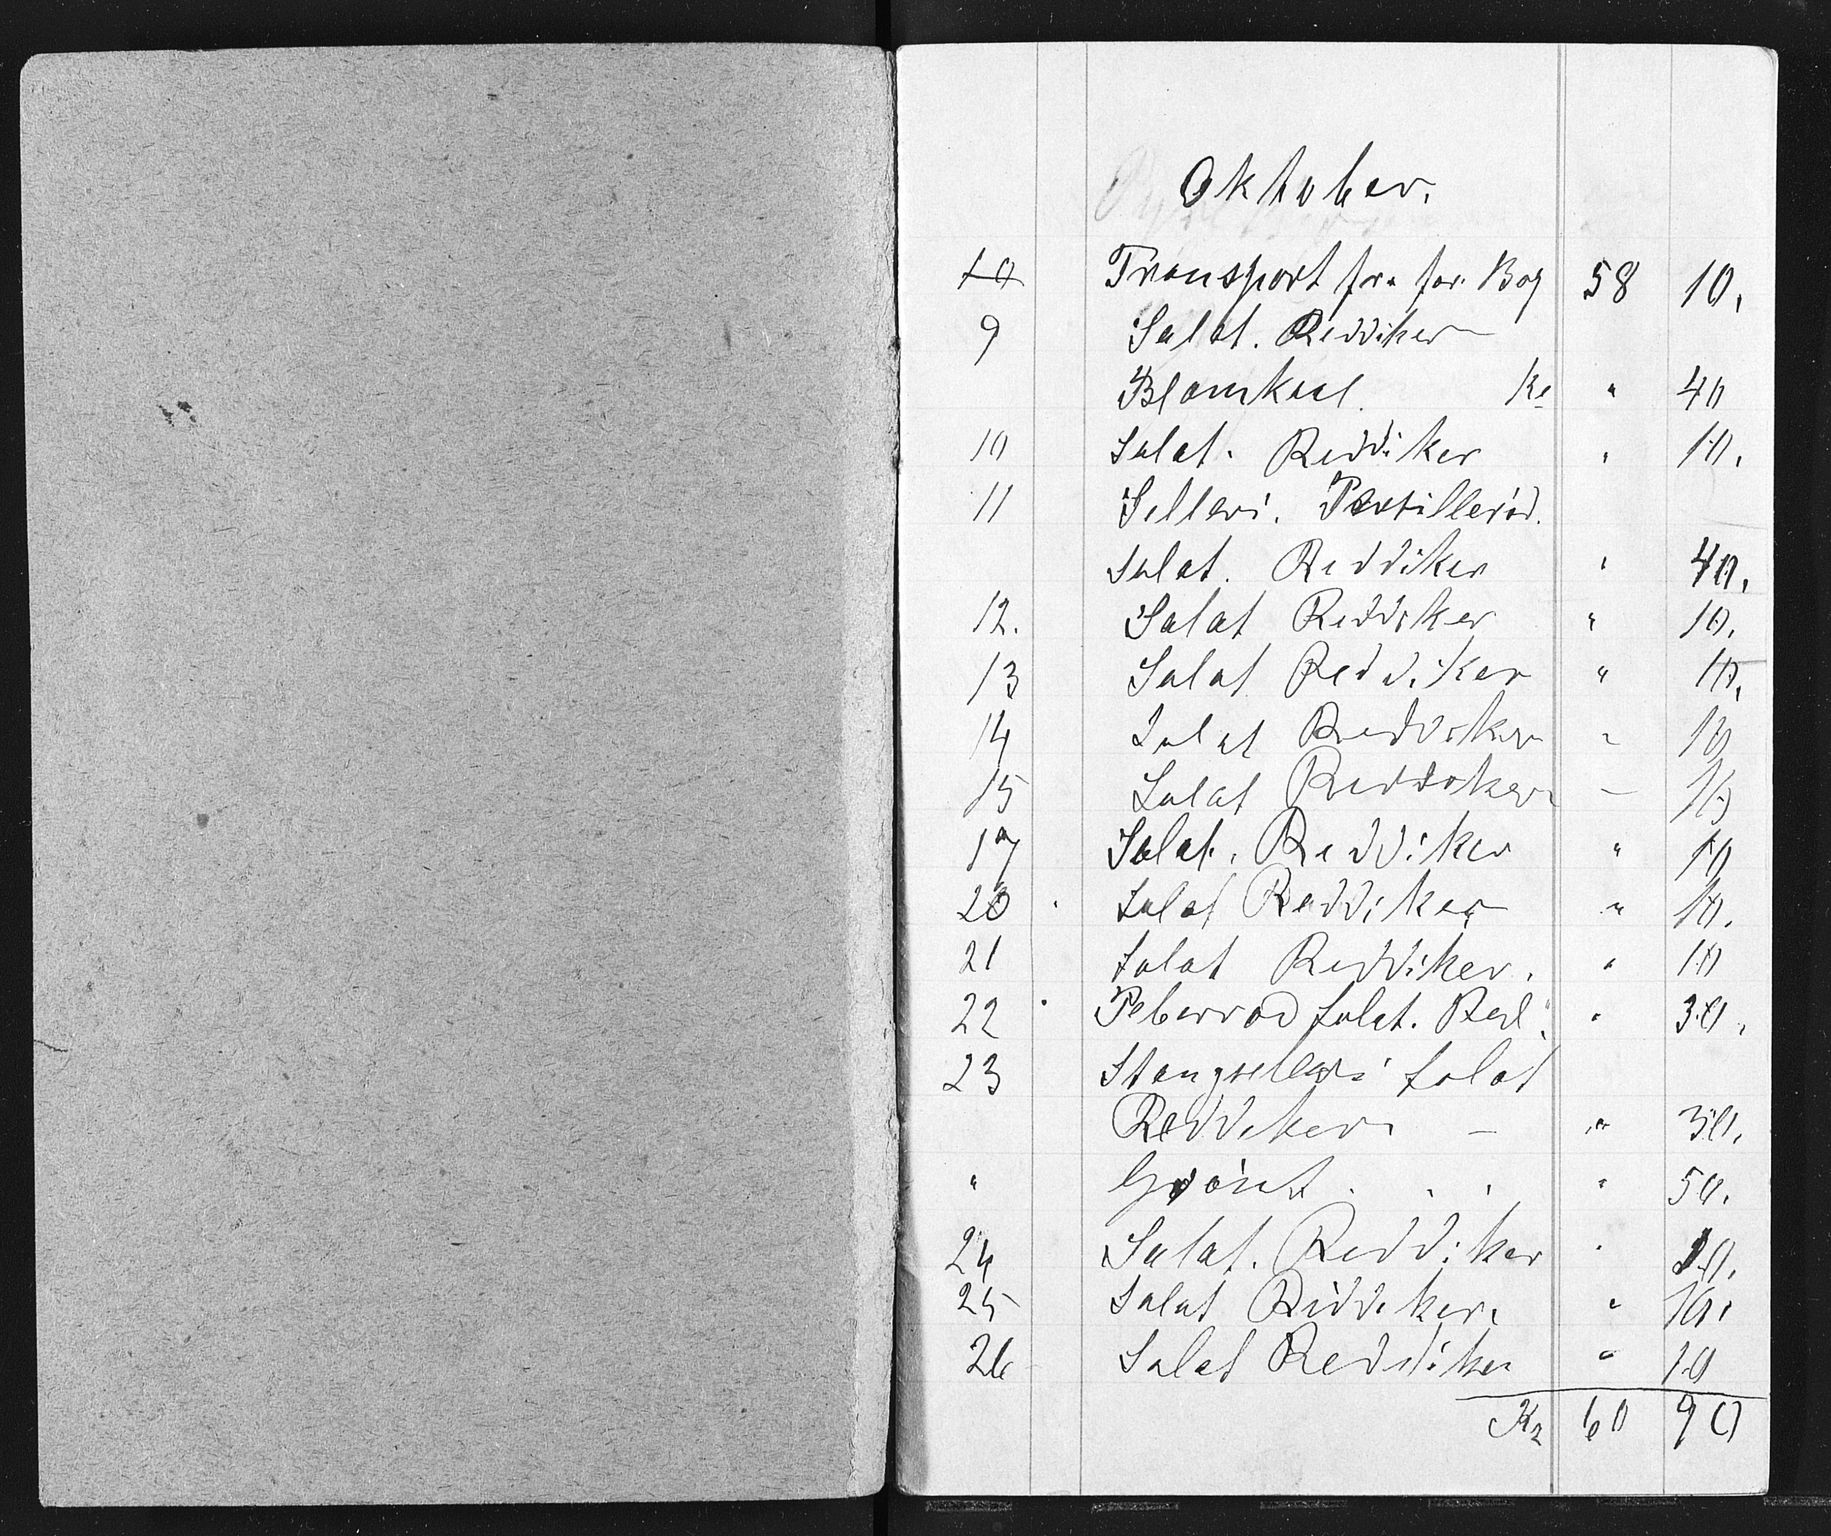 Oktober.
10 Transport fra for. Bog 58 10.
9 Salat. Reddiker
Blomkaal. Kr " 40
10 Salat. Reddiker " 10.
11 Selleri. Postillerød.
Salat. Reddiker " 40.
12. Salat Reddiker " 10.
13 Salat Reddiker " 10.
14 Salat Reddiker " 10
15 Salat Reddiker — 10
17 Salat. Reddiker " 10
20 Salat Reddiker " 10.
21 Salat Reddiker. " 10
22 Peberrod Salat. Red. " 30.
23 Stangselleri Salat
Reddiker — " 30.
" Grönt . . . " 50.
24 Salat. Reddiker " 10.
25 Salat Reddiker. " 10.
26 Salat Reddiker " 10
Kr 60 90